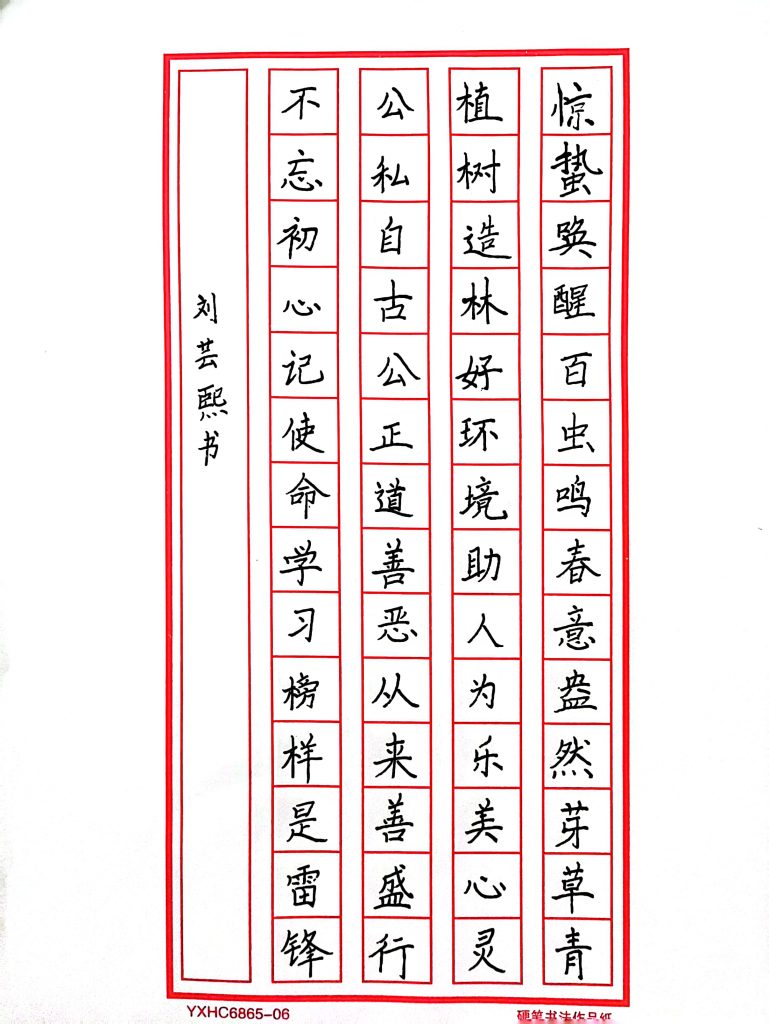 惊蛰唤醒百虫鸣春意盎然芽草青
植树造林好环境助人为乐美心灵
公私自古公正道善恶从来善盛行
不忘初心记使命学习榜样是雷锋
刘芸熙书
YXHC6865-06
硬笔书法作品纸